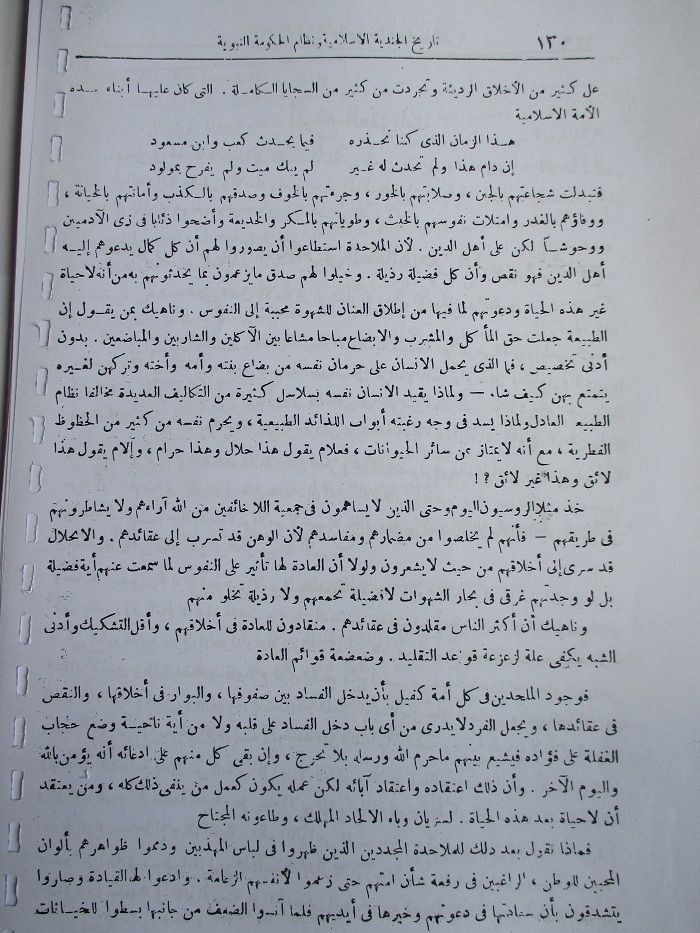 ١٣٠ تاريخ الجندية الاسلامية ونظام الحكومة النبوية
على كثير من الأخلاق الرديئة وتجردت من كثير من السجايا الكاملة . التى كان عليها أبناء هذه
الأمة الاسلامية
هذا الزمان الذى كنا نحذره فيما يحدث كعب وابن مسعود
إن دام هذا ولم تحدث له غير لم يبك ميت ولم يفرح بمولود
فتبدلت شجاعتهم بالجبن ، وصلابتهم بالخور ، وجرءتهم بالخوف وصدقهم بالكذب وأمانتهم بالخيانة ،
ووفاؤهم بالغدر وامتلات نفوسهم بالخبث ، وطوياتهم بالمكر والخديعة وأضحوا ذئابا فى زى الآدميين
ووحوشا لكن على أهل الدين . لأن الملاحدة استطاعوا أن يصوروا لهم أن كل كمال يدعوهم إليه
أهل الدين فهو نقص وأن كل فضيلة رذيلة . وخيلوا لهم صدق مايزعمون بما يحدثونهم به من أنه لاحياة
غير هذه الحياة ودعوتهم لما فيها من إطلاق العنان للشهوة محببة إلى النفوس . وناهيك بمن يقول إن
الطبيعة جعلت حق المأكل والمشرب والابضاع مباحا مشاعا بين الآكلين والشاربين والمباضعين . بدون
أدنى تخصيص ، فما الذى يحمل الانسان على حرمان نفسه من بضاع بنته وأمه وأخته وتركهن لغيره
يتمتع بهن كيف شاء — ولماذا يقيد الانسان نفسه بسلاسل كثيرة من التكاليف العديدة مخالفا نظام
الطبيعه العادل ولماذا يسد فى وجه رغبته أبواب اللذائذ الطبيعية ، ويحرم نفسه من كثير من الحظوظ
الفطرية ، مع أنه لايمتاز عن سائر الحيوانات ، فعلام يقول هذا حلال وهذا حرام ، وإلام يقول هذا
لائق وهذا غير لائق ؟!
خذ مثلا الروسيون اليوم وحتى الذين لايساهمون فى جمعية اللاخائفين من الله آراءهم ولا يشاطرونهم
فى طريقهم — فأنهم لم يخلصوا من مضارهم ومفاسدهم لأن الوهن قد تسرب إلى عقائدهم . والانحلال
قد سرى إلى أخلاقهم من حيث لايشعرون ولولا أن العادة لها تأثير على النفوس لما سمعت عنهم أية فضيلة
بل لو وجدتهم غرقى فى بحار الشهوات لافضيلة تجمعهم ولا رذيلة تخلو منهم
وناهيك أن أكثر الناس مقلدون فى عقائدهم . منقادون للعادة فى أخلاقهم ، وأقل التشكيك وأدنى
الشبه يكفى علة لزعزعة قواعد التقليد . وضعضعة قوائم العادة
فوجود الملحدين فى كل أمة كفيل بأن يدخل الفساد بين صفوفها ، والبوار فى أخلاقها ، والنقص
فى عقائدها ، ويجعل الفرد لايدرى من أى باب دخل الفساد على قلبه ولا من أية ناحية وضع حجاب
الغفلة على فؤاده فيشيع بينهم ماحرم الله ورسله بلا تحرج ، وإن بقى كل منهم على ادعائه أنه يؤمن بالله
واليوم الآخر . وأن ذلك اعتقاده واعتقاد آبائه لكن عمله يكون كعمل من ينفى ذلك كله ، ومن يعتقد
أن لاحياة بعد هذه الحياة . لسريان وباء الالحاد المهلك ، وطاعونه المجتاح
فماذا نقول بعد ذلك للملاحدة المجددين الذين ظهروا فى لباس المهذبين ودمموا ظواهرهم بألوان
المحبين للوطن ، الراغبين فى رفعة شأن امتهم حتى زعموا لأنفسهم الزعامة . وادعوا لها القيادة وصاروا
يتشدقون بأن سعادتها فى دعوتهم وخيرها فى أيديهم فلما آنسوا الضعف من جانبها بسطوا للخيانات